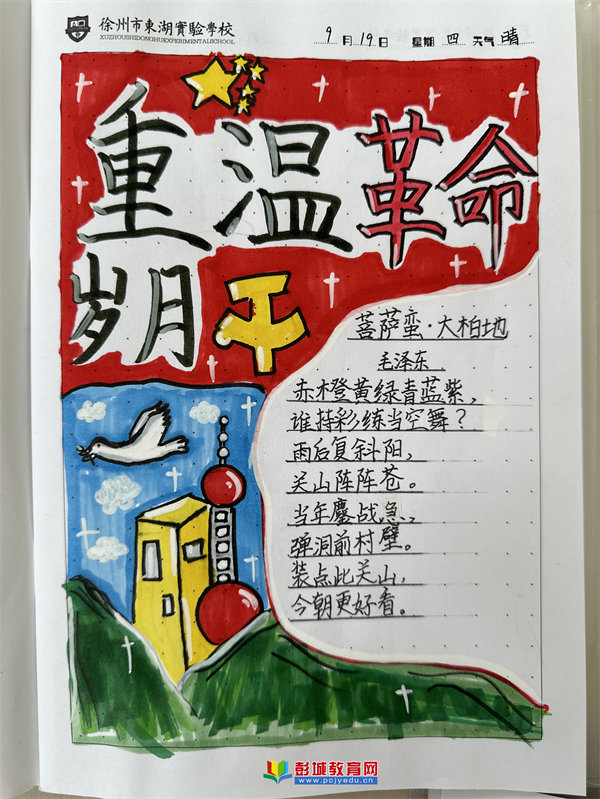 徐州市東湖實驗學校
XUZHOUSHIDONGHUEXPERIMENTALSCHOOL
9月19日 星期 四 天气 晴
重温革命
岁月
菩萨蛮·大柏地
毛泽东
赤橙黄绿青蓝紫,
谁持彩练当空舞?
雨后复斜阳,
关山阵阵苍。
当年鏖战急,
弹洞前村壁。
装点此关山,
今朝更好看。
彭城教育网
www.pcjyedu.cn